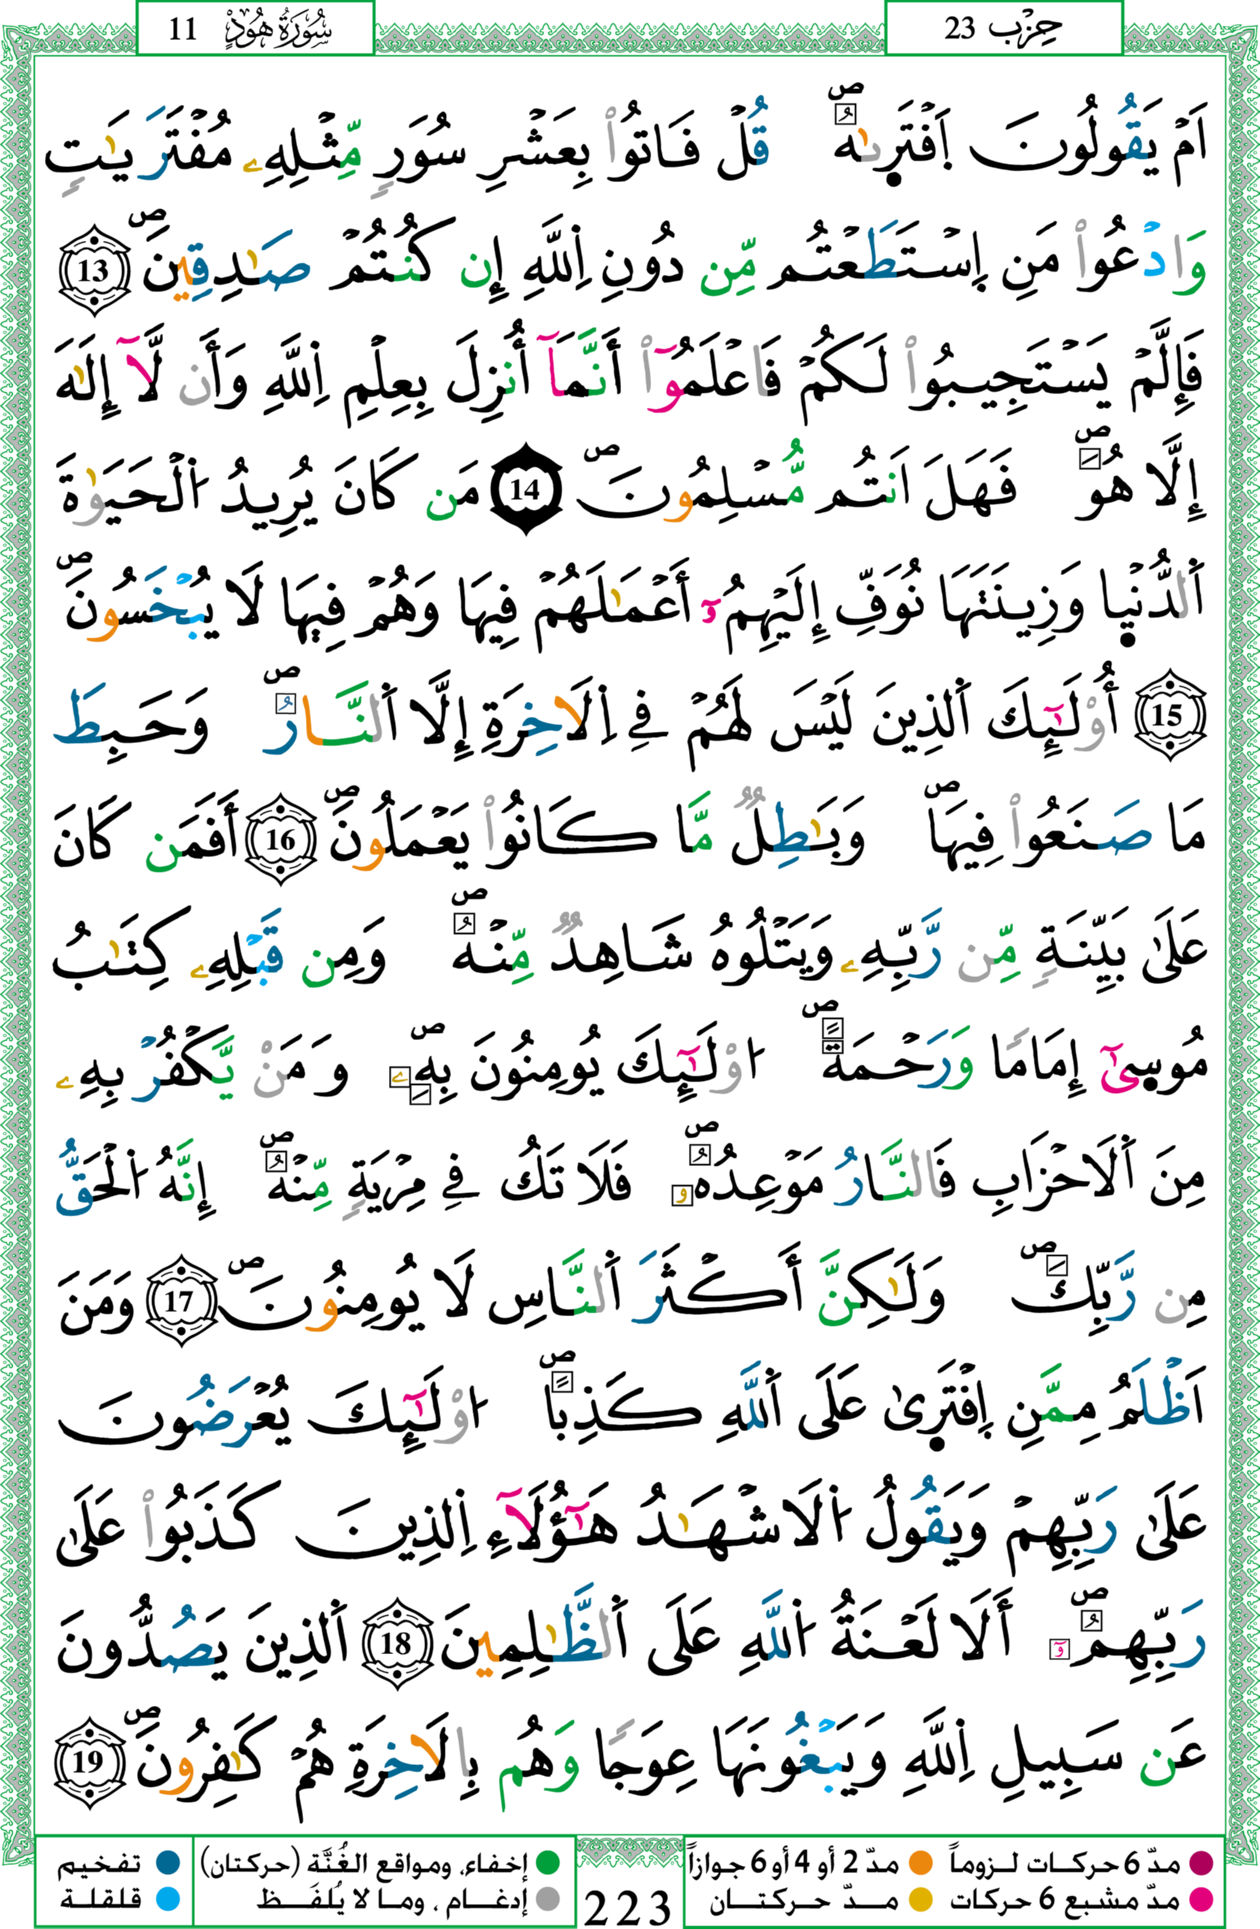 سُورَةُ هُودٍ 11
حِزْب 23
اَمْ يَقُولُونَ اَ۪فْتَر۪يٰهُۖ قُلْ فَاتُواْ بِعَشْرِ سُوَرٖ مِّثْلِهِۦ مُفْتَرَيَٰتٖ
وَادْعُواْ مَنِ اِ۪سْتَطَعْتُم مِّن دُونِ اِ۬للَّهِ إِن كُنتُمْ صَٰدِقِينَۖ 13
فَإِلَّمْ يَسْتَجِيبُواْ لَكُمْ فَاعْلَمُوٓاْ أَنَّمَآ أُنزِلَ بِعِلْمِ اِ۬للَّهِ وَأَن لَّآ إِلَٰهَ
إِلَّا هُوَۖ فَهَلَ اَنتُم مُّسْلِمُونَۖ 14 مَن كَانَ يُرِيدُ اُ۬لْحَيَوٰةَ
اَ۬لدُّنْي۪ا وَزِينَتَهَا نُوَفِّ إِلَيْهِمُۥٓ أَعْمَٰلَهُمْ فِيهَا وَهُمْ فِيهَا لَا يُبْخَسُونَۖ
15 أُوْلَٰٓئِكَ اَ۬لذِينَ لَيْسَ لَهُمْ فِے اِ۬لَاخِرَةِ إِلَّا اَ۬لنَّارُۖ وَحَبِطَ
مَا صَنَعُواْ فِيهَاۖ وَبَٰطِلٞ مَّا كَانُواْ يَعْمَلُونَۖ 16 أَفَمَن كَانَ
عَلَىٰ بَيِّنَةٖ مِّن رَّبِّهِۦ وَيَتْلُوهُ شَاهِدٞ مِّنْهُۖ وَمِن قَبْلِهِۦ كِتَٰبُ
مُوس۪ىٰٓ إِمَامٗا وَرَحْمَةًۖ ا۟وْلَٰٓئِكَ يُومِنُونَ بِهِۦۖ وَمَنْ يَّكْفُرْ بِهِۦ
مِنَ اَ۬لَاحْزَابِ فَالنَّارُ مَوْعِدُهُۥۖ فَلَا تَكُ فِے مِرْيَةٖ مِّنْهُۖ إِنَّهُ اُ۬لْحَقُّ
مِن رَّبِّكَۖ وَلَٰكِنَّ أَكْثَرَ اَ۬لنَّاسِ لَا يُومِنُونَۖ 17 وَمَنَ
اَظْلَمُ مِمَّنِ اِ۪فْتَر۪ىٰ عَلَى اَ۬للَّهِ كَذِباًۖ ا۟وْلَٰٓئِكَ يُعْرَضُونَ
عَلَىٰ رَبِّهِمْ وَيَقُولُ اُ۬لَاشْهَٰدُ هَٰٓؤُلَآءِ اِ۬لذِينَ كَذَبُواْ عَلَىٰ
رَبِّهِمُۥٓۖ أَلَا لَعْنَةُ اُ۬للَّهِ عَلَى اَ۬لظَّٰلِمِينَ 18 اَ۬لذِينَ يَصُدُّونَ
عَن سَبِيلِ اِ۬للَّهِ وَيَبْغُونَهَا عِوَجٗا وَهُم بِالَاخِرَةِ هُمْ كَٰفِرُونَۖ 19
مدّ 6 حركات لـزوماً مدّ 2 أو 4 أو 6 جوازاً
مدّ مشبع 6 حركات مــدّ حركتــان
223
إخفاء، ومواقع الغُنَّة (حركتان) تفخيم
إدغـام ، ومـا لا يُلفَـظ قلقلة